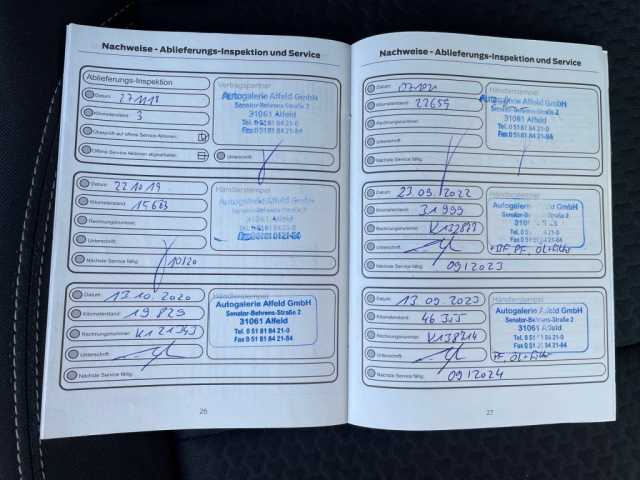 Nachweise - Ablieferungs-Inspektion und Service
Ablieferungs-Inspektion
Datum: 27.11.18
Kilometerstand: 3
Überprüft auf offene Service-Aktionen:
Offene Service-Aktionen abgearbeitet:
Vertragspartner
Autogalerie Alfeld GmbH
Senator-Behrens-Straße 2
31061 Alfeld
Tel. 0 51 81 84 21-0
Fax 0 51 81 84 21-84
Unterschrift:
Datum: 22.10.19
Kilometerstand:
Rechnungsnummer:
Unterschrift:
Nächste Service fällig: 10/20
Händlerstempel
Autogalerie Alfeld GmbH
Senator-Behrens-Straße 2
31061 Alfeld
Datum: 13.10.2020
Kilometerstand: 19 829
Rechnungsnummer: K121343
Unterschrift:
Nächste Service fällig:
Händlerstempel
Autogalerie Alfeld GmbH
Senator-Behrens-Straße 2
31061 Alfeld
Tel. 0 51 81 84 21-0
Fax 0 51 81 84 21-84
26
Nachweise - Ablieferungs-Inspektion und Service
Datum:
Kilometerstand: 22659
Rechnungsnummer:
Unterschrift:
Nächste Service fällig:
Händlerstempel
Autogalerie Alfeld GmbH
Senator-Behrens-Straße 2
31061 Alfeld
Tel. 0 51 81 84 21-0
Fax 0 51 81 84 21-84
Datum: 23.09.2022
Kilometerstand: 31 999
Rechnungsnummer:
Unterschrift:
Nächste Service fällig: 09/2023
Händlerstempel
Autogalerie Alfeld GmbH
Senator-Behrens-Straße 2
+BF, PF, Öl+Filter
Datum: 13 09. 2023
Kilometerstand: 46 355
Rechnungsnummer: K138214
Unterschrift:
Nächste Service fällig: 09/2024
Händlerstempel
Autogalerie Alfeld GmbH
Senator-Behrens-Straße 2
31061 Alfeld
PF, Öl+Filter
27